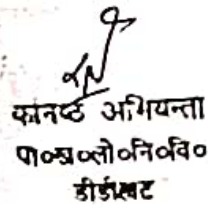 कनिष्ठ अभियन्ता
पा०ख०लो०नि०वि०
डीडीहाट